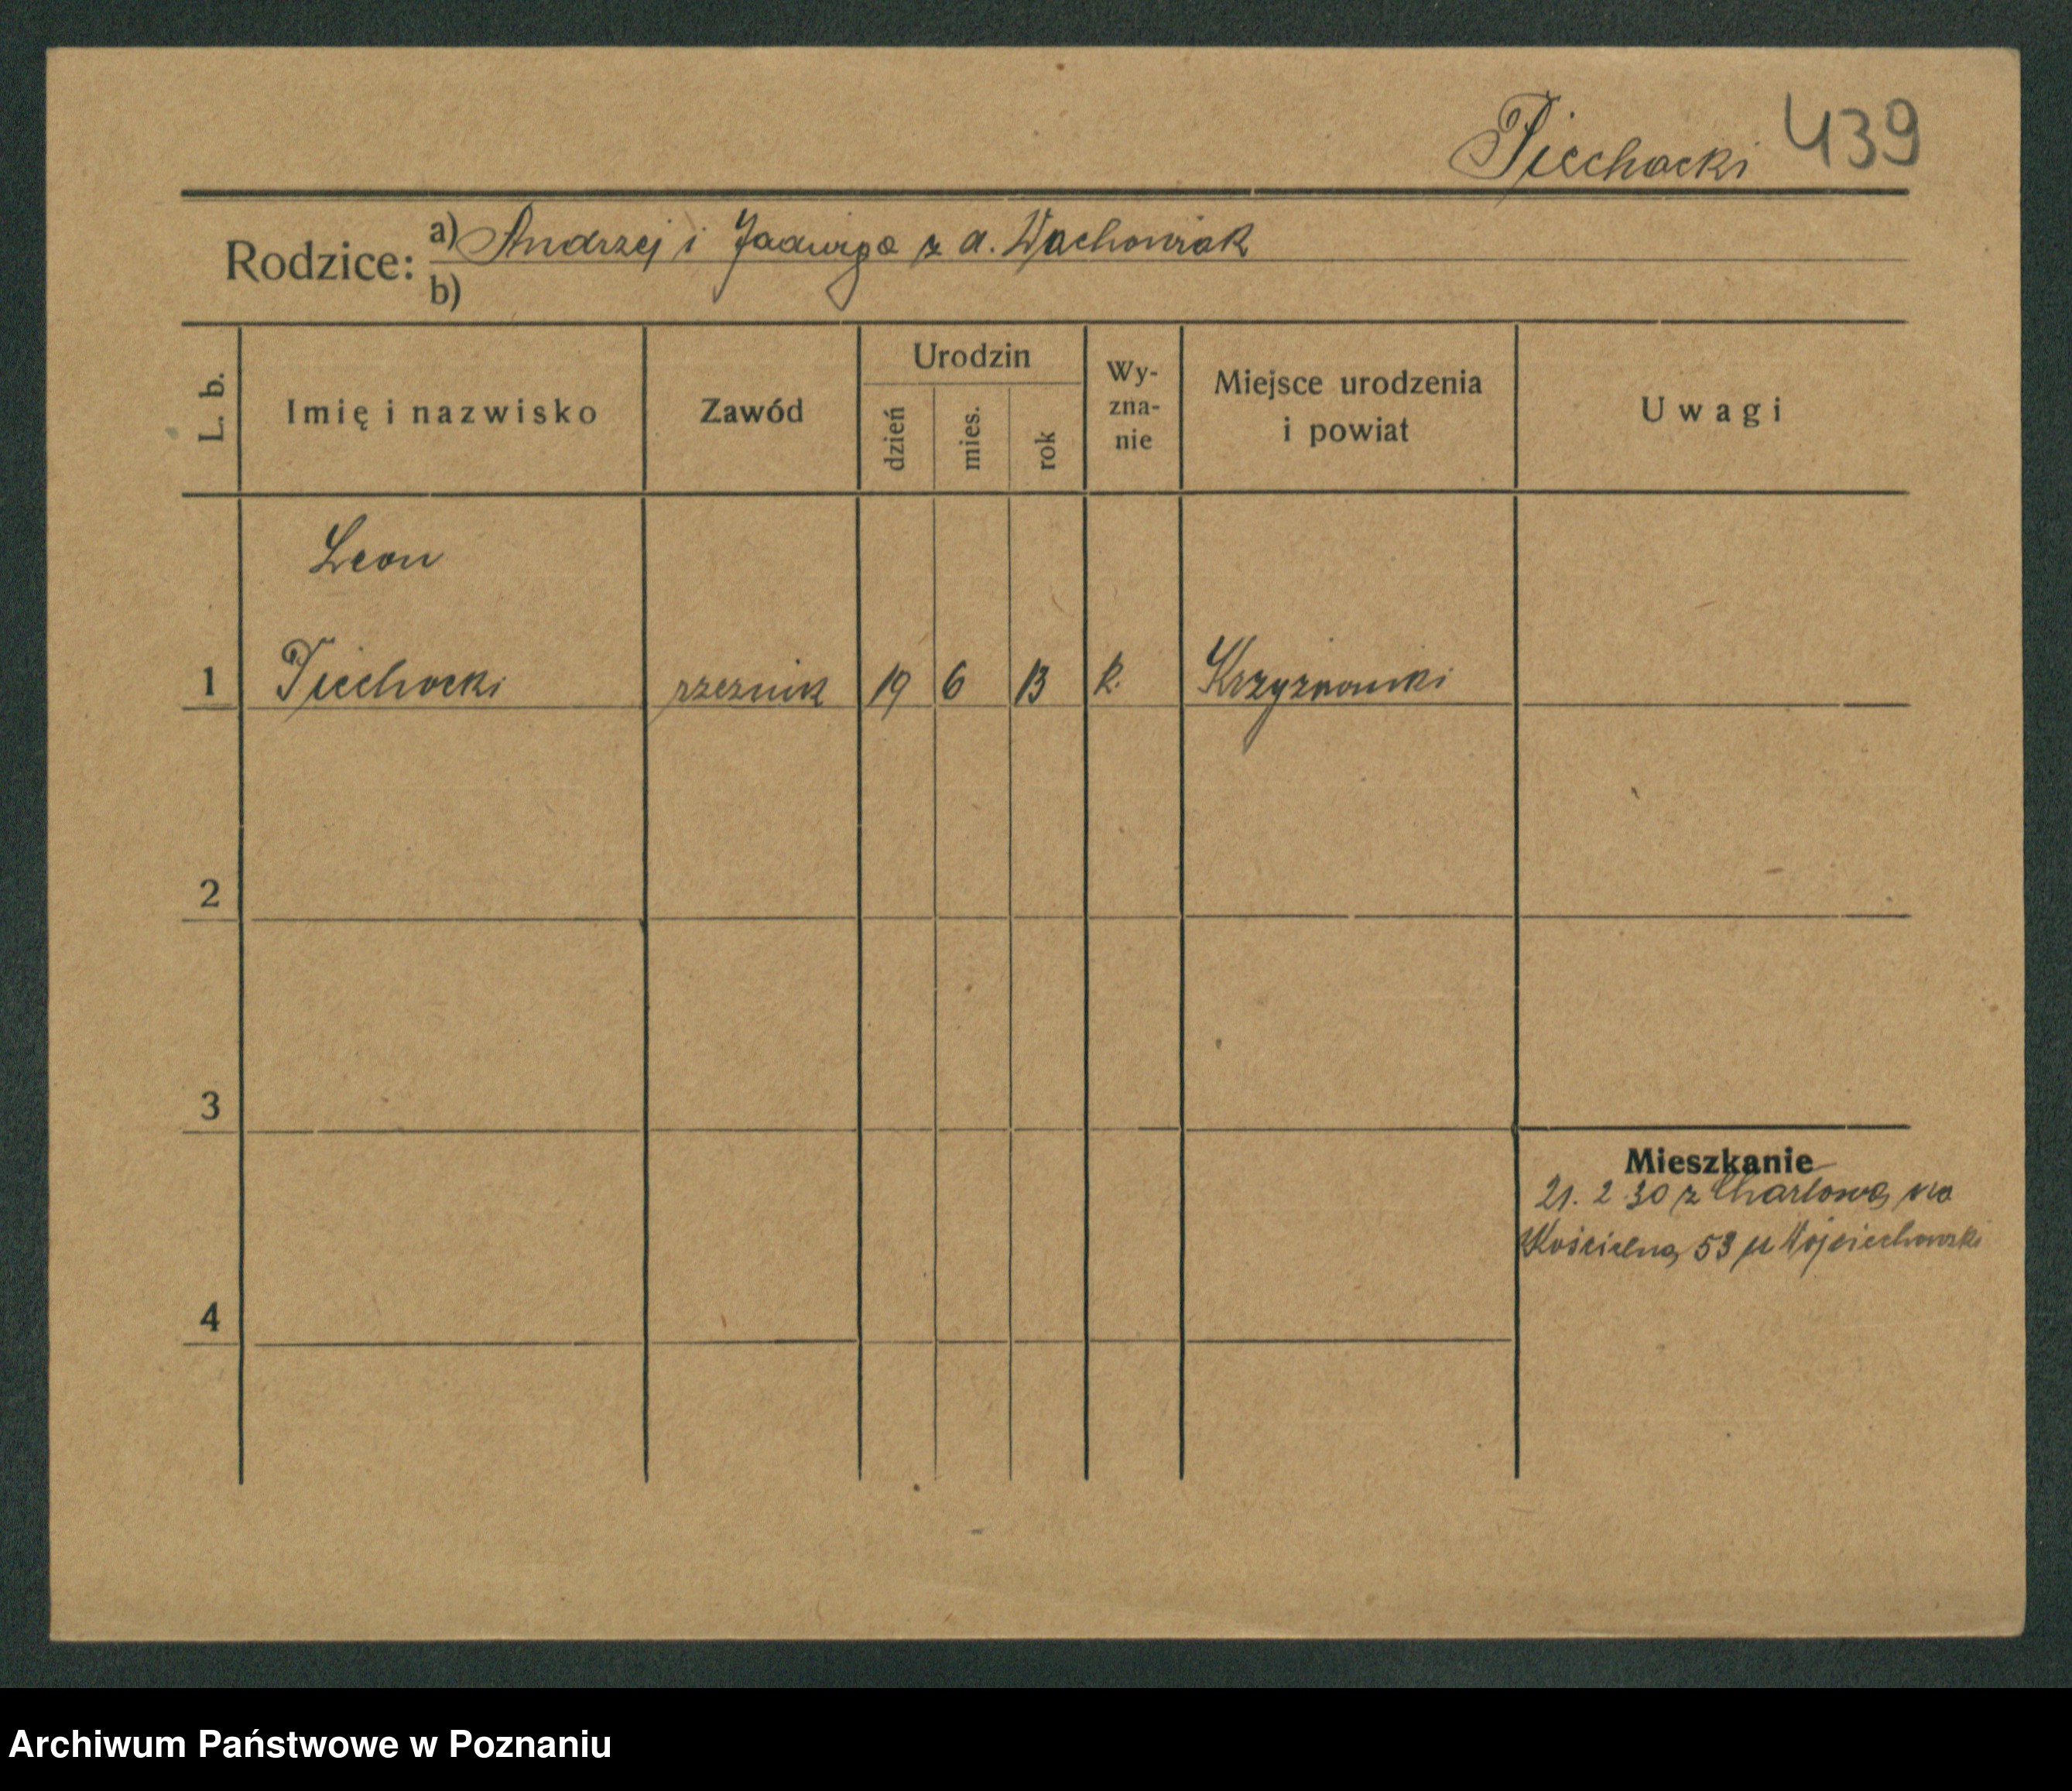 Piechocki 439
Rodzice: a) Andrzej i Jadwiga z d. Wachowiak
b)
L. b.
Imię i nazwisko
Zawód
Urodzin
dzień
mies.
rok
Wy-
zna-
nie
Miejsce urodzenia
i powiat
Uwagi
Leon
1 Piechocki rzeznik 19 6 13 k. Krzyżowniki
2
3
4
Mieszkanie
21. 2 30 z Charłowa, na
Kościelną 53 u Wojciechowski
Archiwum Państwowe w Poznaniu